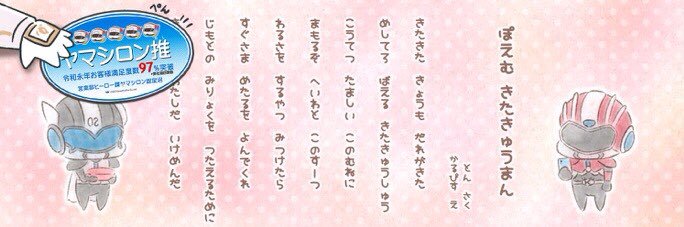 ぽえむ きたきゅうまん
とん さく
かるぴす え
きたきた きょうも だれがきた
めしてろ ばえる きたきゅうしゅう
こうてつ たましい このむねに
まもるぞ へいわと このすーつ
わるさを するやつ みつけたら
すぐさま めたるを よんでくれ
じもとの みりょくを つたえるために
たしだ いけめんだ
ぺん
ヤマシロン推
令和永年お客様満足度数97%突破
営業部ヒーロー課ヤマシロン
02